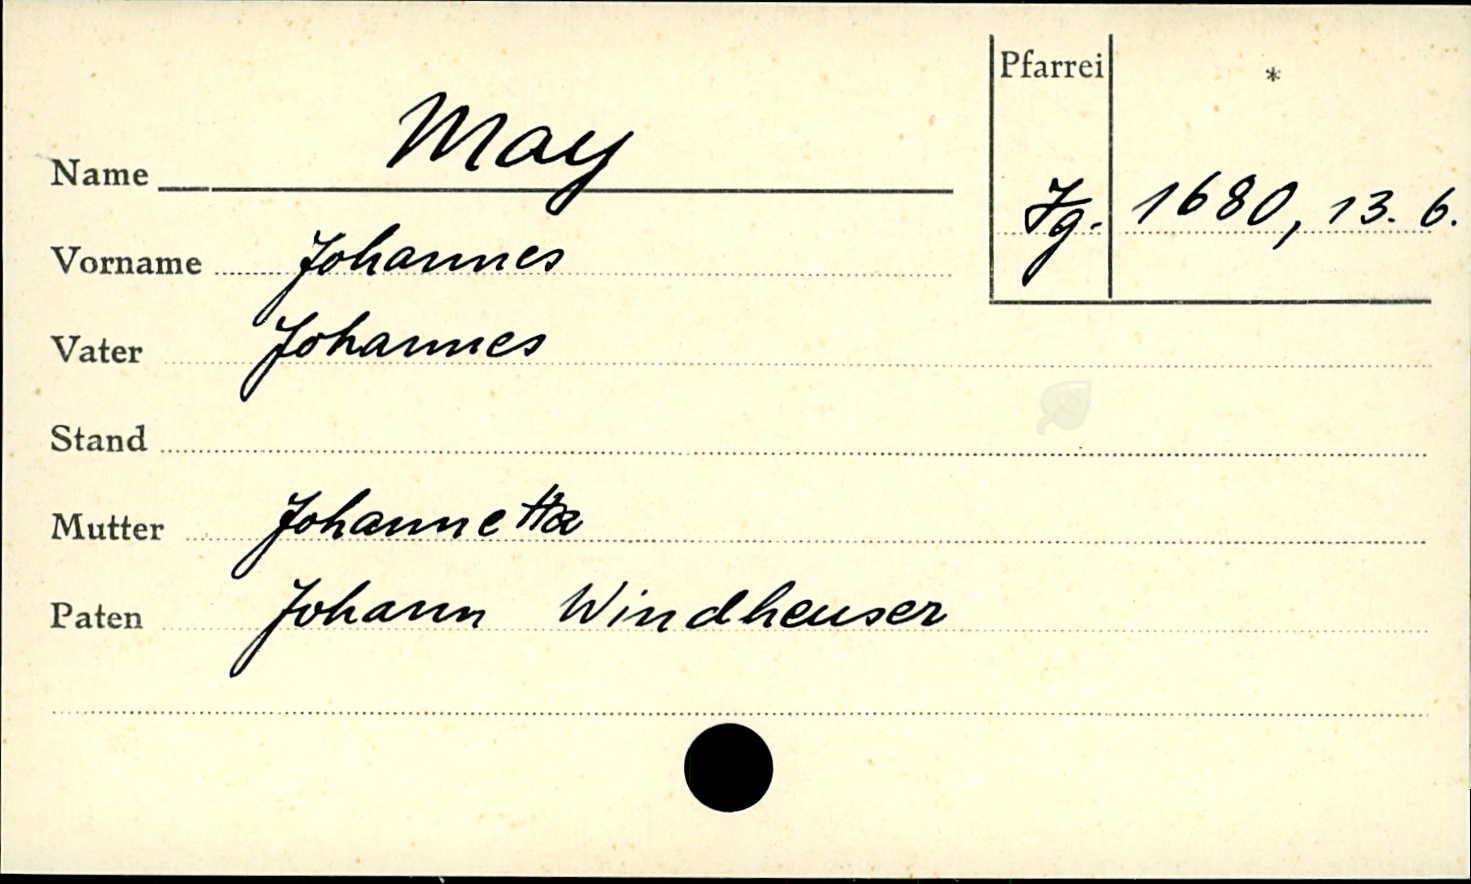 Pfarrei *
Name May
Jg. 1680, 13. 6.
Vorname Johannes
Vater Johannes
Stand
Mutter Johannetta
Paten Johann Windheuser